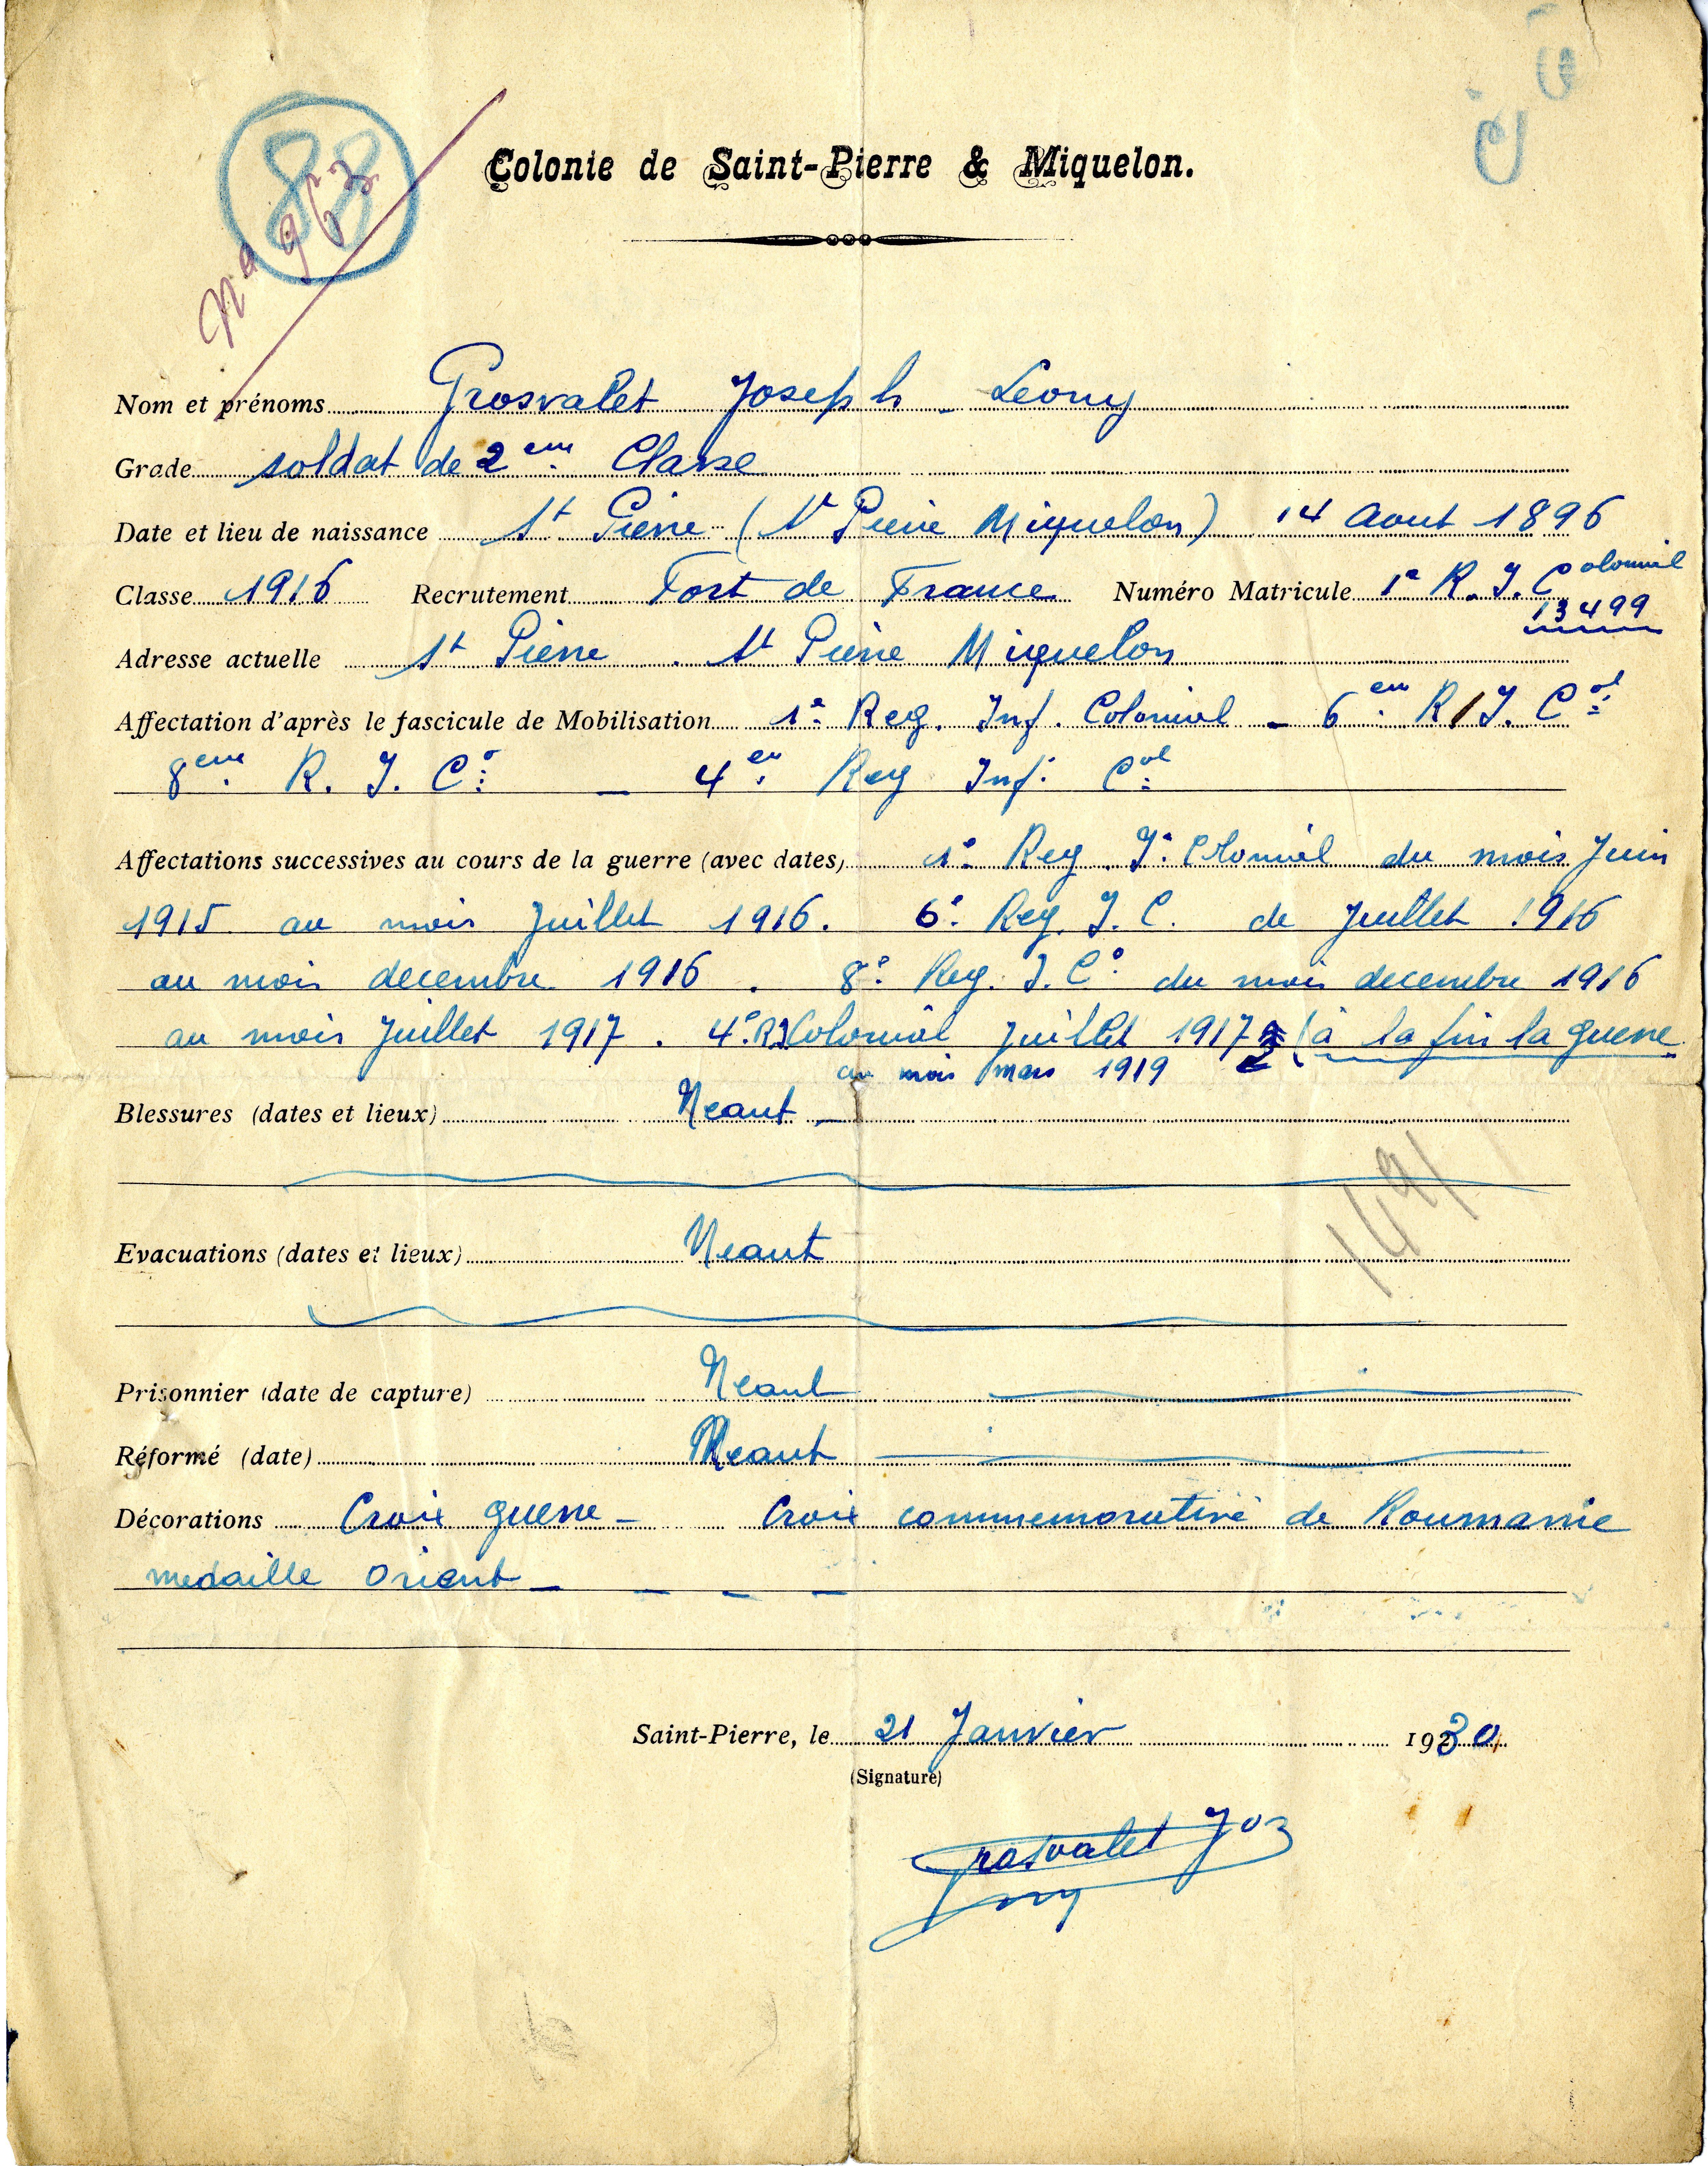 88
Nº 963
Colonie de Saint-Pierre & Miquelon.
Nom et prénoms Grosvalet Joseph - Leony
Grade soldat de 2eme Classe
Date et lieu de naissance St Pierre (St Pierre Miquelon) 14 Aout 1896
Classe 1916 Recrutement Fort de France Numéro Matricule 1e R. I. Colonial
13499
Adresse actuelle St Pierre . St Pierre Miquelon
Affectation d'après le fascicule de Mobilisation 1e Reg. Inf. Colonial - 6em R/I. Col
8eme R. I. Co - 4em Reg Inf. Col
Affectations successives au cours de la guerre (avec dates) 1e Reg. I. Colonial du mois Juin
1915 au mois Juillet 1916. 6e Reg. I. C. de Juillet 1916
au mois decembre 1916 . 8e Reg. I. Co du mois decembre 1916
au mois Juillet 1917 . 4e R I Colonial Juillet 1917 (à la fin la guerre
au mois mars 1919
Blessures (dates et lieux) Neant -
Evacuations (dates et lieux) Neant
Prisonnier (date de capture) Neant
Réformé (date) Neant
Décorations Croix guerre - Croix commemorative de Roumanie
medaille Orient - - - -
Saint-Pierre, le 21 Janvier 1930
(Signature)
Grosvalet Jos